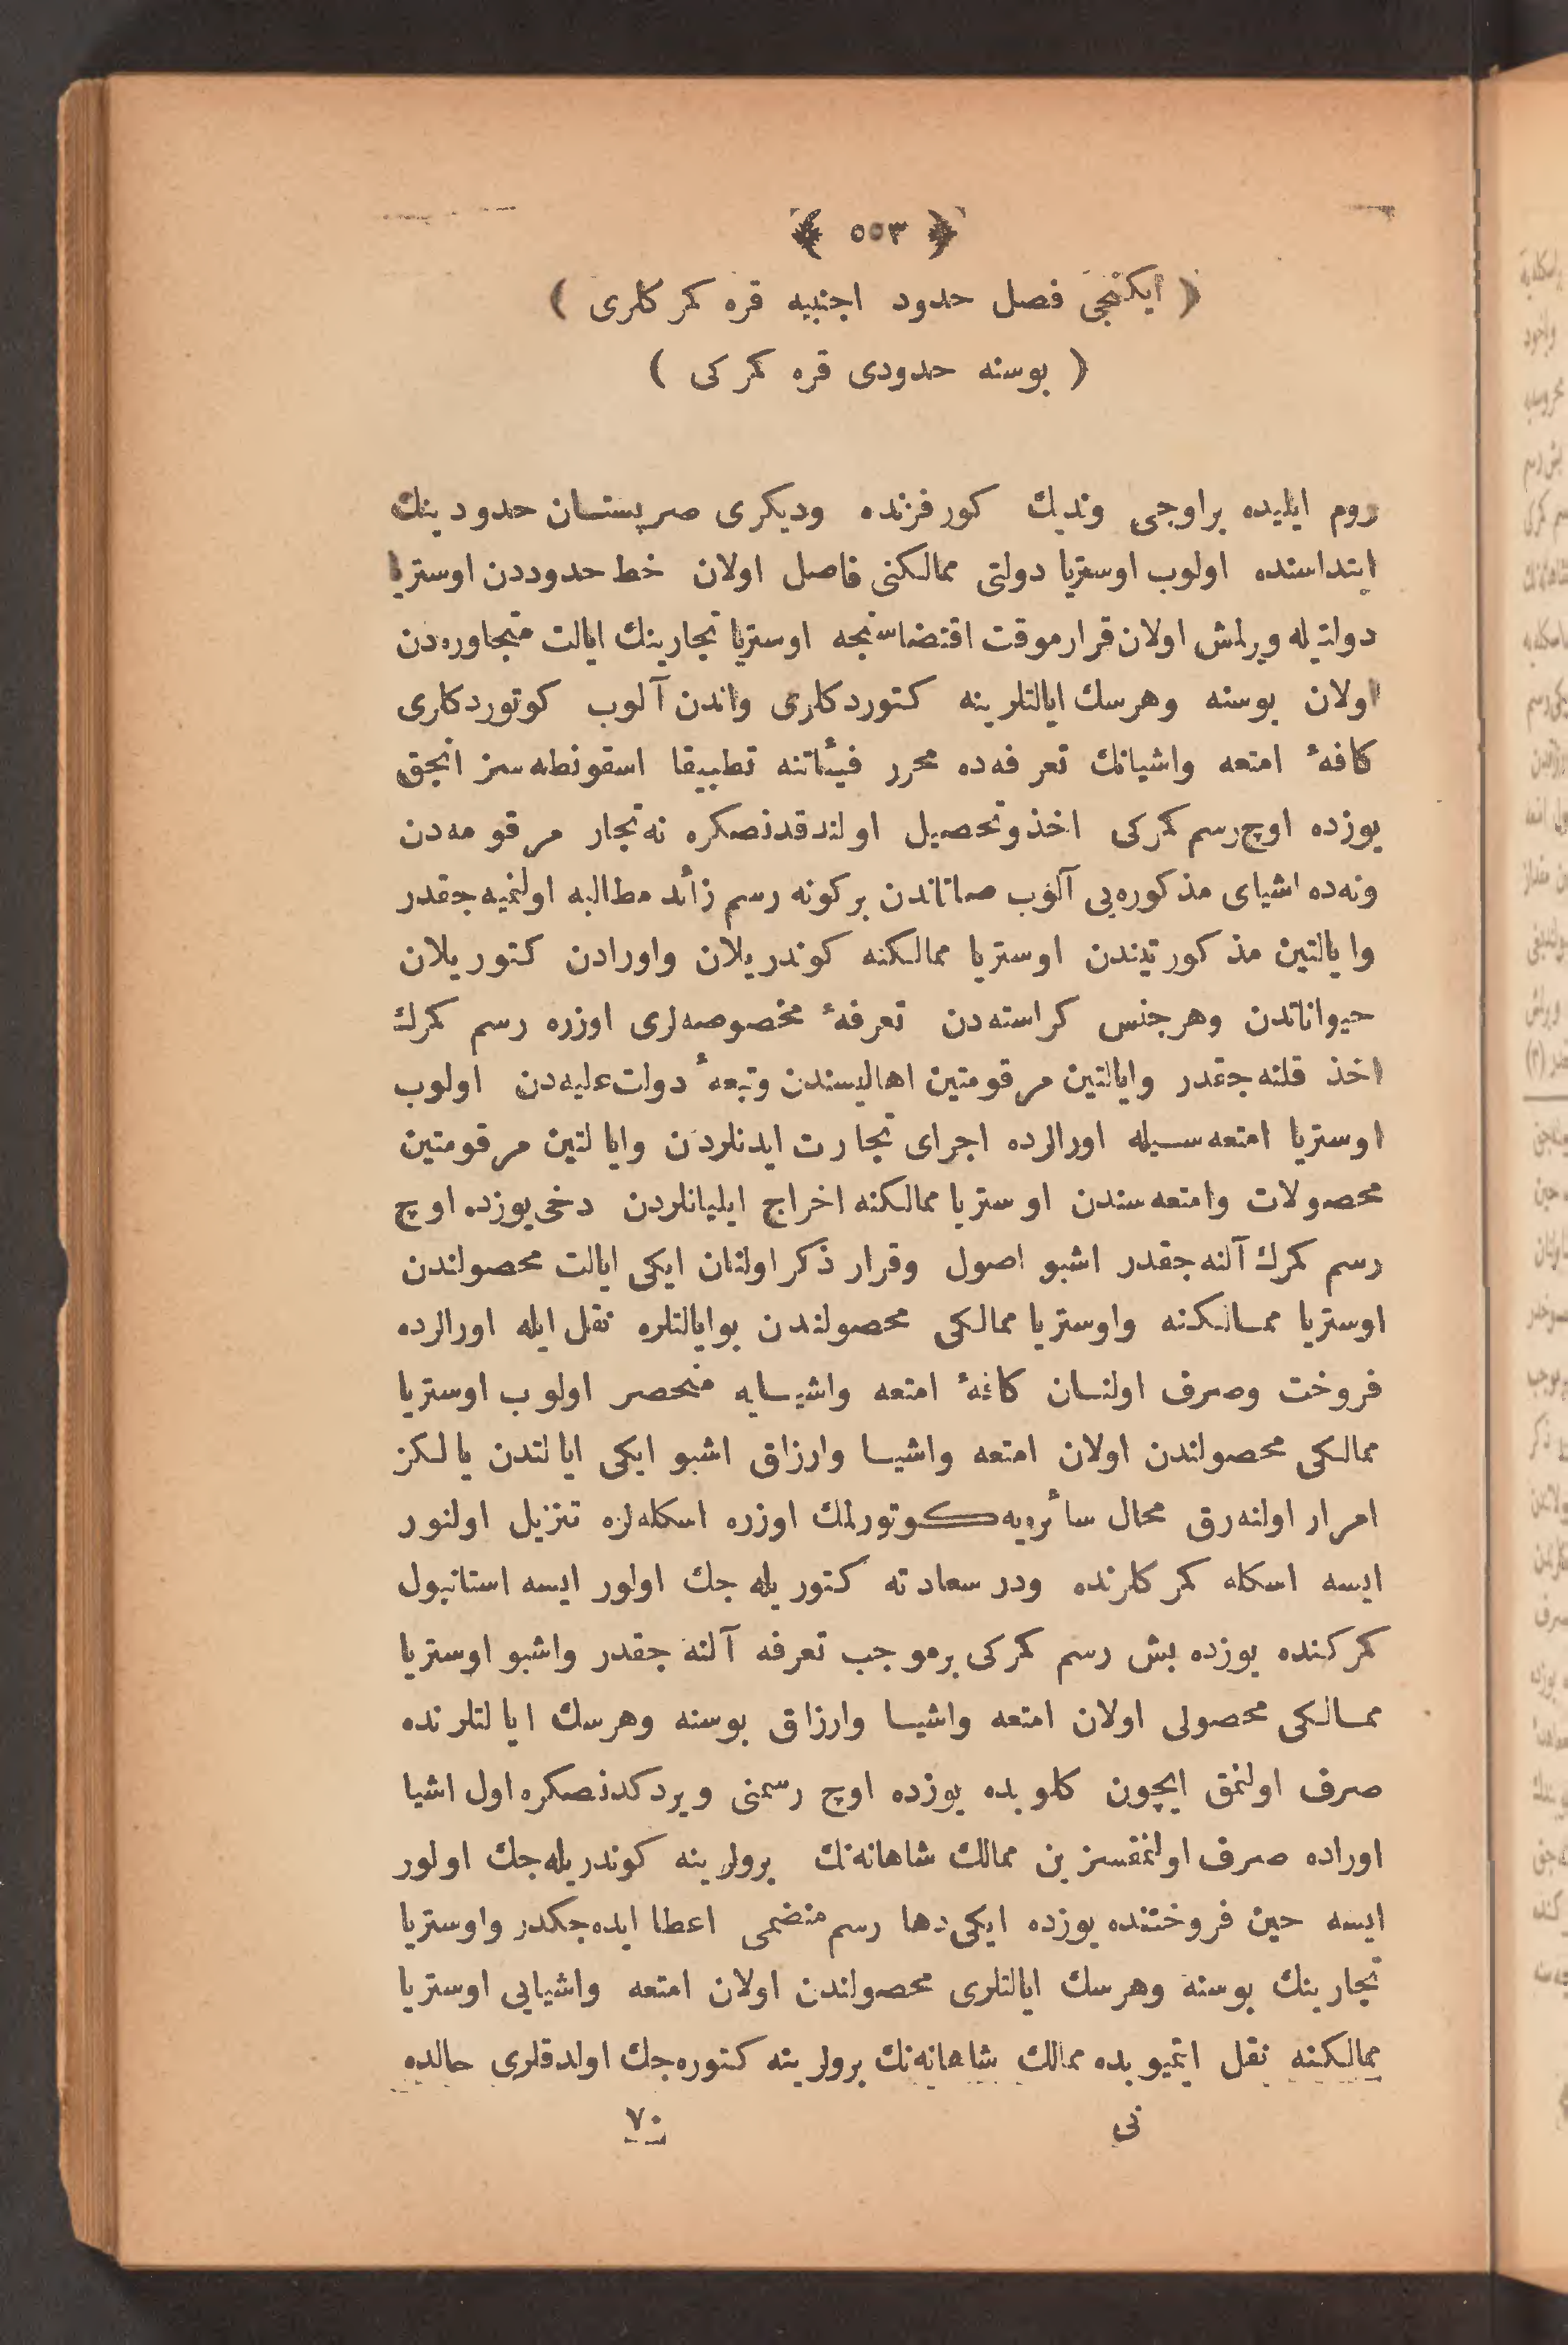 ﴿ ٥٥٣ ﴾
( ایکنجی فصل حدود اجنبیه قره کمرکلری )
( بوسنه حدودی قره کمرکی )
روم ایلیده براوجی وندیك کورفزنده ودیکری صربستان حدودینك
ابتداسنده اولوب اوستریا دولتی ممالکنی فاصل اولان خط حدوددن اوستریا
دولتیله ویرلمش اولان قرارموقت اقتضاسنجه اوستریا تجارینك ایالت متجاوره‌دن
اولان بوسنه وهرسك ایالتلرینه کتوردکلری واندن آلوب کوتوردکلری
کافهٔ امتعه واشیانك تعرفه‌ده محرر فیئاتنه تطبیقا اسقونطه‌سز انجق
یوزده اوچ رسم کمرکی اخذ وتحصیل اولندقدنصکره نه تجار مرقومه‌دن
ونه‌ده اشیای مذکوره‌یی آلوب صاتاندن برکونه رسم زائد مطالبه اولنمیه‌جقدر
وایالتین مذکورتیندن اوستریا ممالکنه کوندریلان واورادن کتوریلان
حیواناتدن وهرجنس کراسته‌دن تعرفهٔ مخصوصه‌لری اوزره رسم کمرك
اخذ قلنه‌جقدر وایالتین مرقومتین اهالیسندن وتبعهٔ دولت علیه‌دن اولوب
اوستریا امتعه‌سیله اورالرده اجرای تجارت ایدنلردن وایالتین مرقومتین
محصولات وامتعه‌سندن اوستریا ممالکنه اخراج ایلیانلردن دخی یوزده اوچ
رسم کمرك آلنه‌جقدر اشبو اصول وقرار ذکر اولنان ایکی ایالت محصولندن
اوستریا ممالکنه واوستریا ممالکی محصولندن بوایالتلره نقل ایله اورالرده
فروخت وصرف اولنان کافهٔ امتعه واشیایه منحصر اولوب اوستریا
ممالکی محصولندن اولان امتعه واشیا وارزاق اشبو ایکی ایالتدن یالکز
امرار اولنه‌رق محال سائره‌یه کوتورلمك اوزره اسکله‌لره تنزیل اولنور
ایسه اسکله کمرکلرنده ودر سعادته کتوریله‌جك اولور ایسه استانبول
کمرکنده یوزده بش رسم کمرکی برموجب تعرفه آلنه‌جقدر واشبو اوستریا
ممالکی محصولی اولان امتعه واشیا وارزاق بوسنه وهرسك ایالتلرنده
صرف اولنمق ایچون کلوبده یوزده اوچ رسمنی ویردکدنصکره اول اشیا
اوراده صرف اولنمقسزین ممالك شاهانه‌نك برولرینه کوندریله‌جك اولور
ایسه حین فروختنده یوزده ایکی دها رسم منضمی اعطا ایده‌جکدر واوستریا
تجارینك بوسنه وهرسك ایالتلری محصولندن اولان امتعه واشیایی اوستریا
ممالکنه نقل ایتمیوبده ممالك شاهانه‌نك برولرینه کتوره‌جك اولدقلری حالده
نی ٧٠